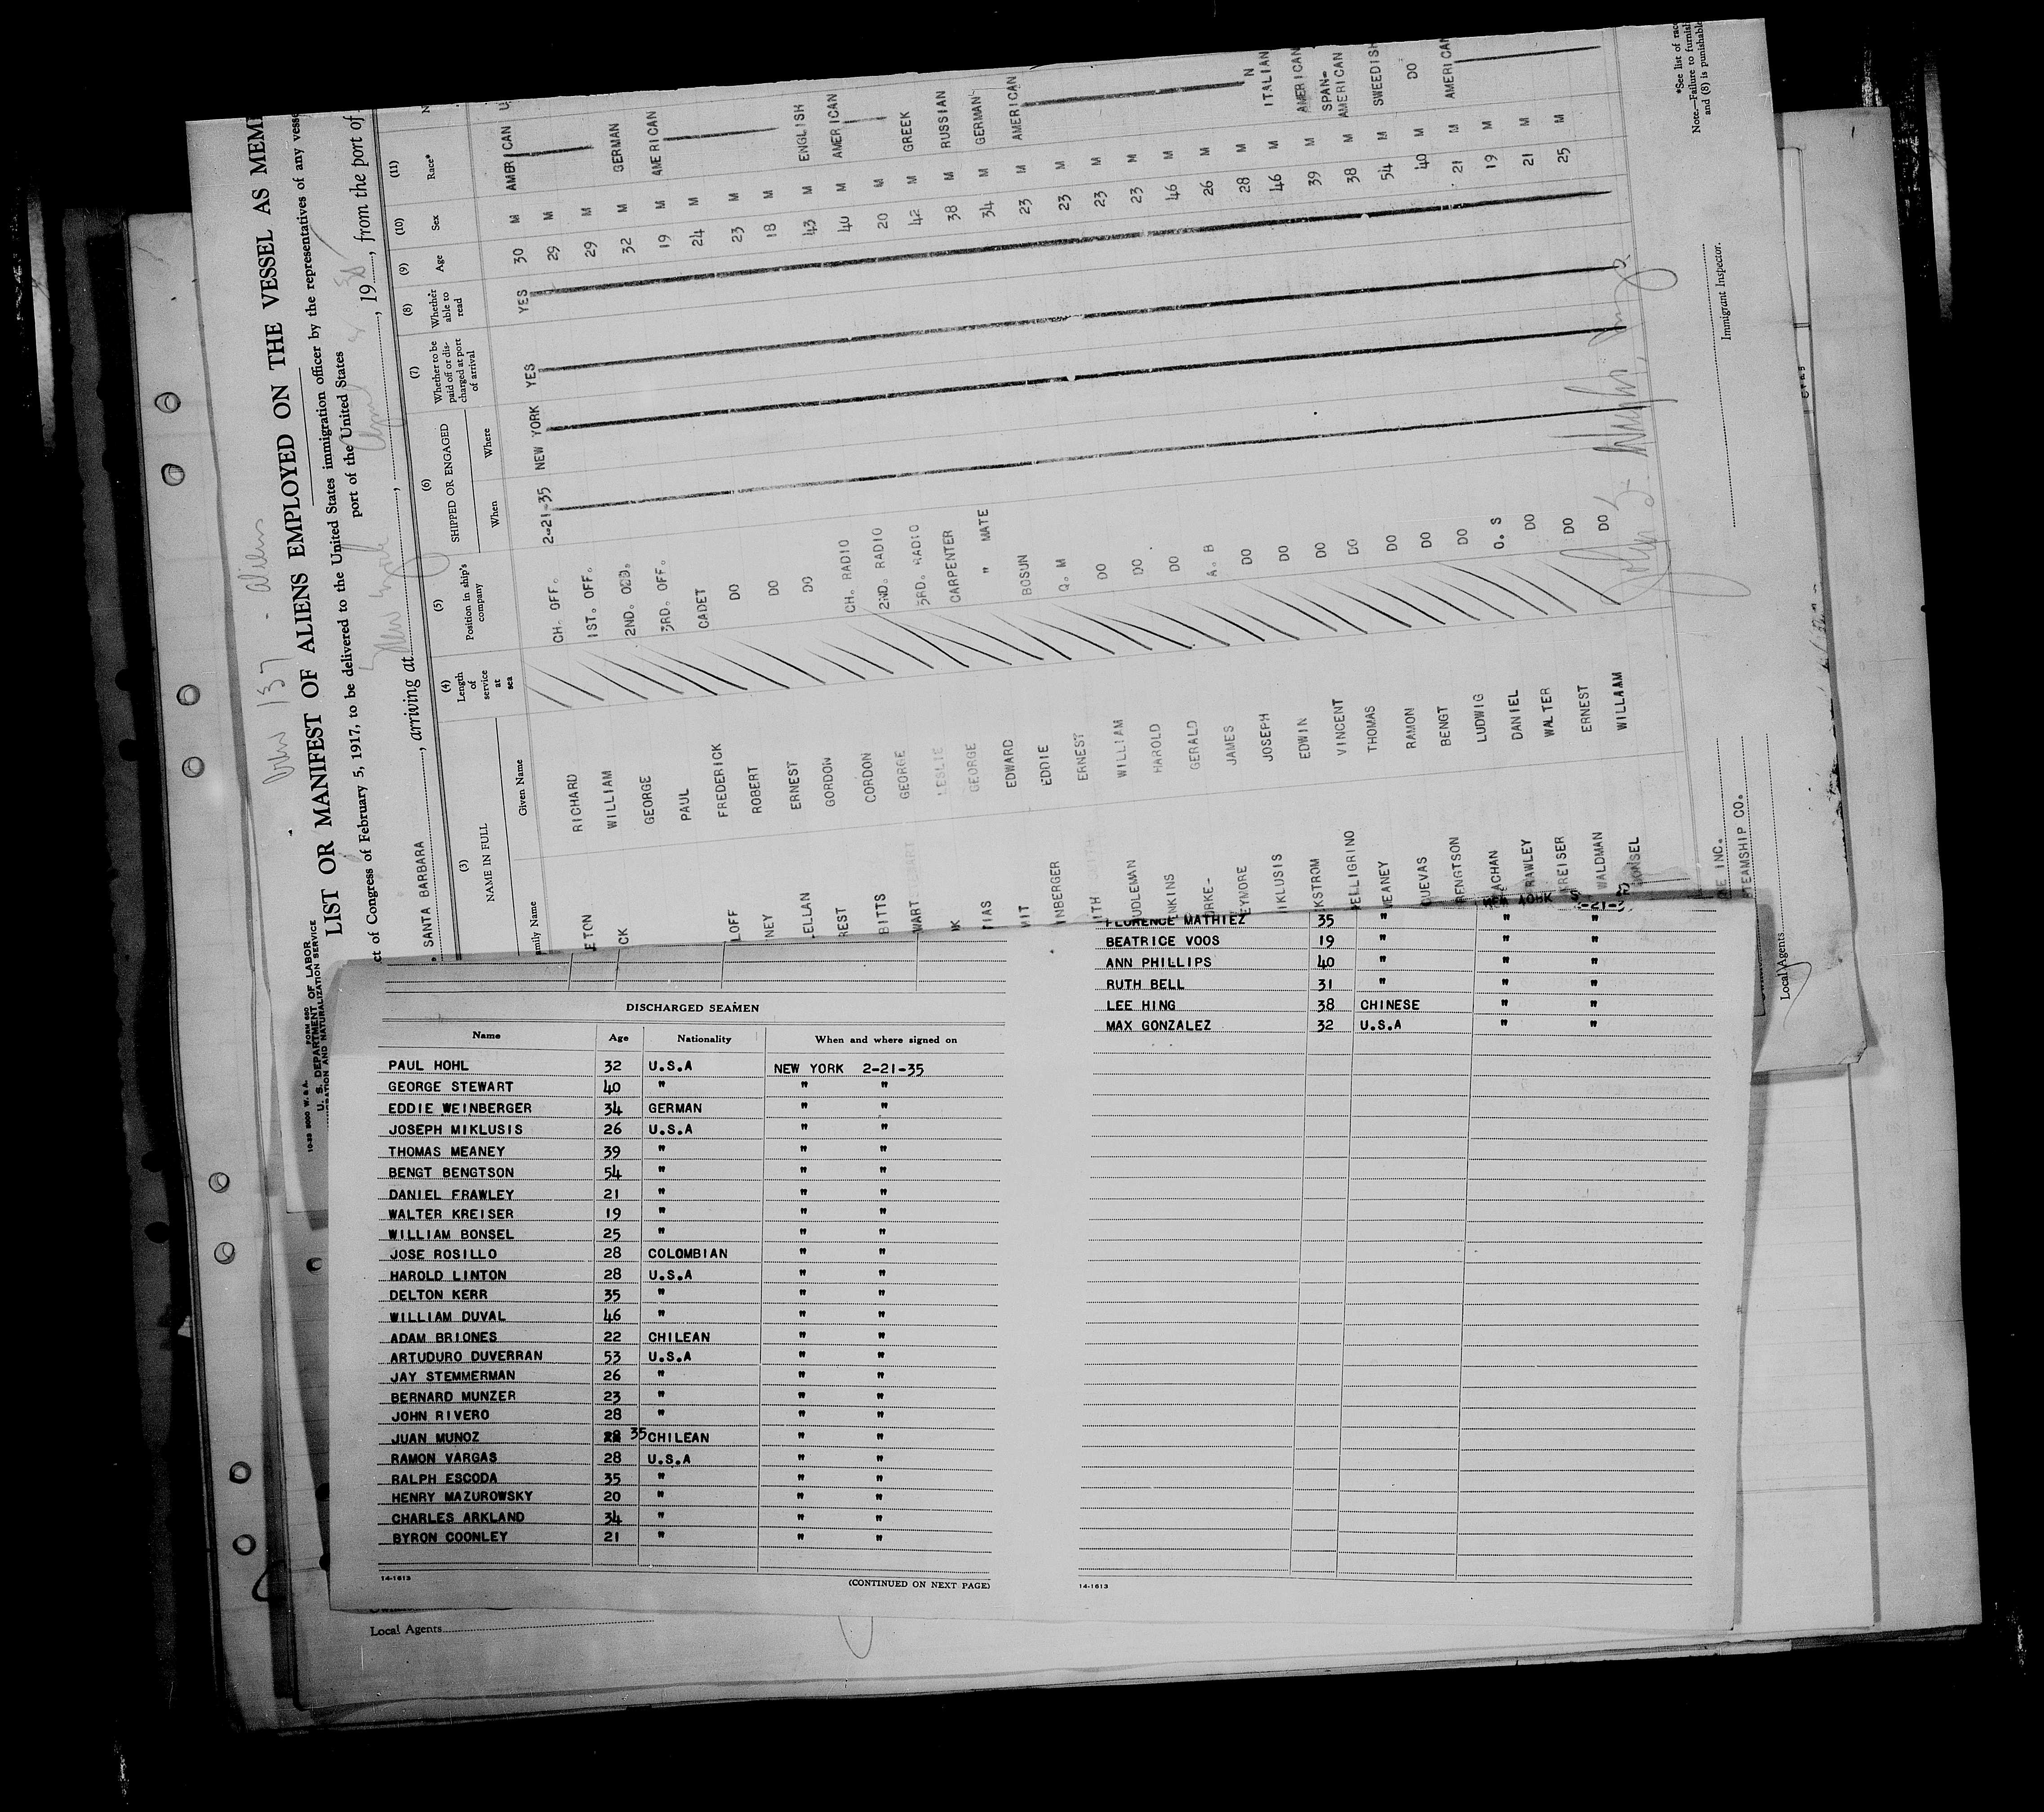 Crew 137 - aliens
FORM 680
U. S. DEPARTMENT OF LABOR
IMMIGRATION AND NATURALIZATION SERVICE
LIST OR MANIFEST OF ALIENS EMPLOYED ON THE VESSEL AS MEM
ct of Congress of February 5, 1917, to be delivered to the United States immigration officer by the representatives of any vesse
port of the United States
SANTA BARBARA, arriving at New York, 19, from the port of
(3) (4) (5) (6) (7) (8) (9) (10) (11)
NAME IN FULL Length of service at sea Position in ship's company SHIPPED OR ENGAGED Whether to be paid off or discharged at port of arrival Whether able to read Age Sex Race*
Family Name Given Name When Where
RICHARD CH. OFF. 2-21-35 NEW YORK YES YES 30 M AMERICAN
ETON WILLIAM 1ST. OFF. 29 M
CK GEORGE 2ND. ODD. 29 M
PAUL 3RD. OFF. 32 M GERMAN
FREDERICK CADET 19 M AMERICAN
LOFF ROBERT DO 24 M
NEY ERNEST DO 23 M
ELLAN GORDON DO 18 M
REST CORDON CH. RADIO 43 M ENGLISH
BITTS GEORGE 2ND. RADIO 40 M AMERICAN
WART LESLIE 3RD. RADIO 20 M
GEORGE CARPENTER 42 M GREEK
IAS EDWARD " MATE 38 M RUSSIAN
MIT EDDIE BOSUN 34 M GERMAN
INBERGER ERNEST Q. M 23 M AMERICAN
WILLIAM DO 23 M
UDLEMAN HAROLD DO 23 M
NKINS GERALD DO 23 M
JAMES A. B 46 M
EYMORE JOSEPH DO 26 M
IKLUSIS EDWIN DO 28 M
KSTROM VINCENT DO 46 M ITALIAN
ELLIGRINO THOMAS DO 39 M AMERICAN
EANEY RAMON DO 38 M SPAN-AMERICAN
UEVAS BENGT DO 54 M SWEDISH
ENGTSON LUDWIG DO 40 M DO
ACHAN DANIEL O. S 21 M AMERICAN
RAWLEY WALTER DO 19 M
KREISER ERNEST DO 21 M
WALDMAN WILLAAM DO 25 M
BONSEL
INC.
TEAMSHIP CO.
Local Agents
Immigrant Inspector.
*See list of rac
Note.—Failure to furnis
and (8) is punishable
DISCHARGED SEAMEN
Name Age Nationality When and where signed on
PAUL HOHL 32 U.S.A NEW YORK 2-21-35
GEORGE STEWART 40 " " "
EDDIE WEINBERGER 34 GERMAN " "
JOSEPH MIKLUSIS 26 U.S.A " "
THOMAS MEANEY 39 " " "
BENGT BENGTSON 54 " " "
DANIEL FRAWLEY 21 " " "
WALTER KREISER 19 " " "
WILLIAM BONSEL 25 " " "
JOSE ROSILLO 28 COLOMBIAN " "
HAROLD LINTON 28 U.S.A " "
DELTON KERR 35 " " "
WILLIAM DUVAL 46 " " "
ADAM BRIONES 22 CHILEAN " "
ARTUDURO DUVERRAN 53 U.S.A " "
JAY STEMMERMAN 26 " " "
BERNARD MUNZER 23 " " "
JOHN RIVERO 28 " " "
JUAN MUNOZ 35 CHILEAN " "
RAMON VARGAS 28 U.S.A " "
RALPH ESCODA 35 " " "
HENRY MAZUROWSKY 20 " " "
CHARLES ARKLAND 34 " " "
BYRON COONLEY 21 " " "
14-1613
(CONTINUED ON NEXT PAGE)
FLORENCE MATHIEZ 35 " " "
BEATRICE VOOS 19 " " "
ANN PHILLIPS 40 " " "
RUTH BELL 31 " " "
LEE HING 38 CHINESE " "
MAX GONZALEZ 32 U.S.A " "
14-1613
Local Agents